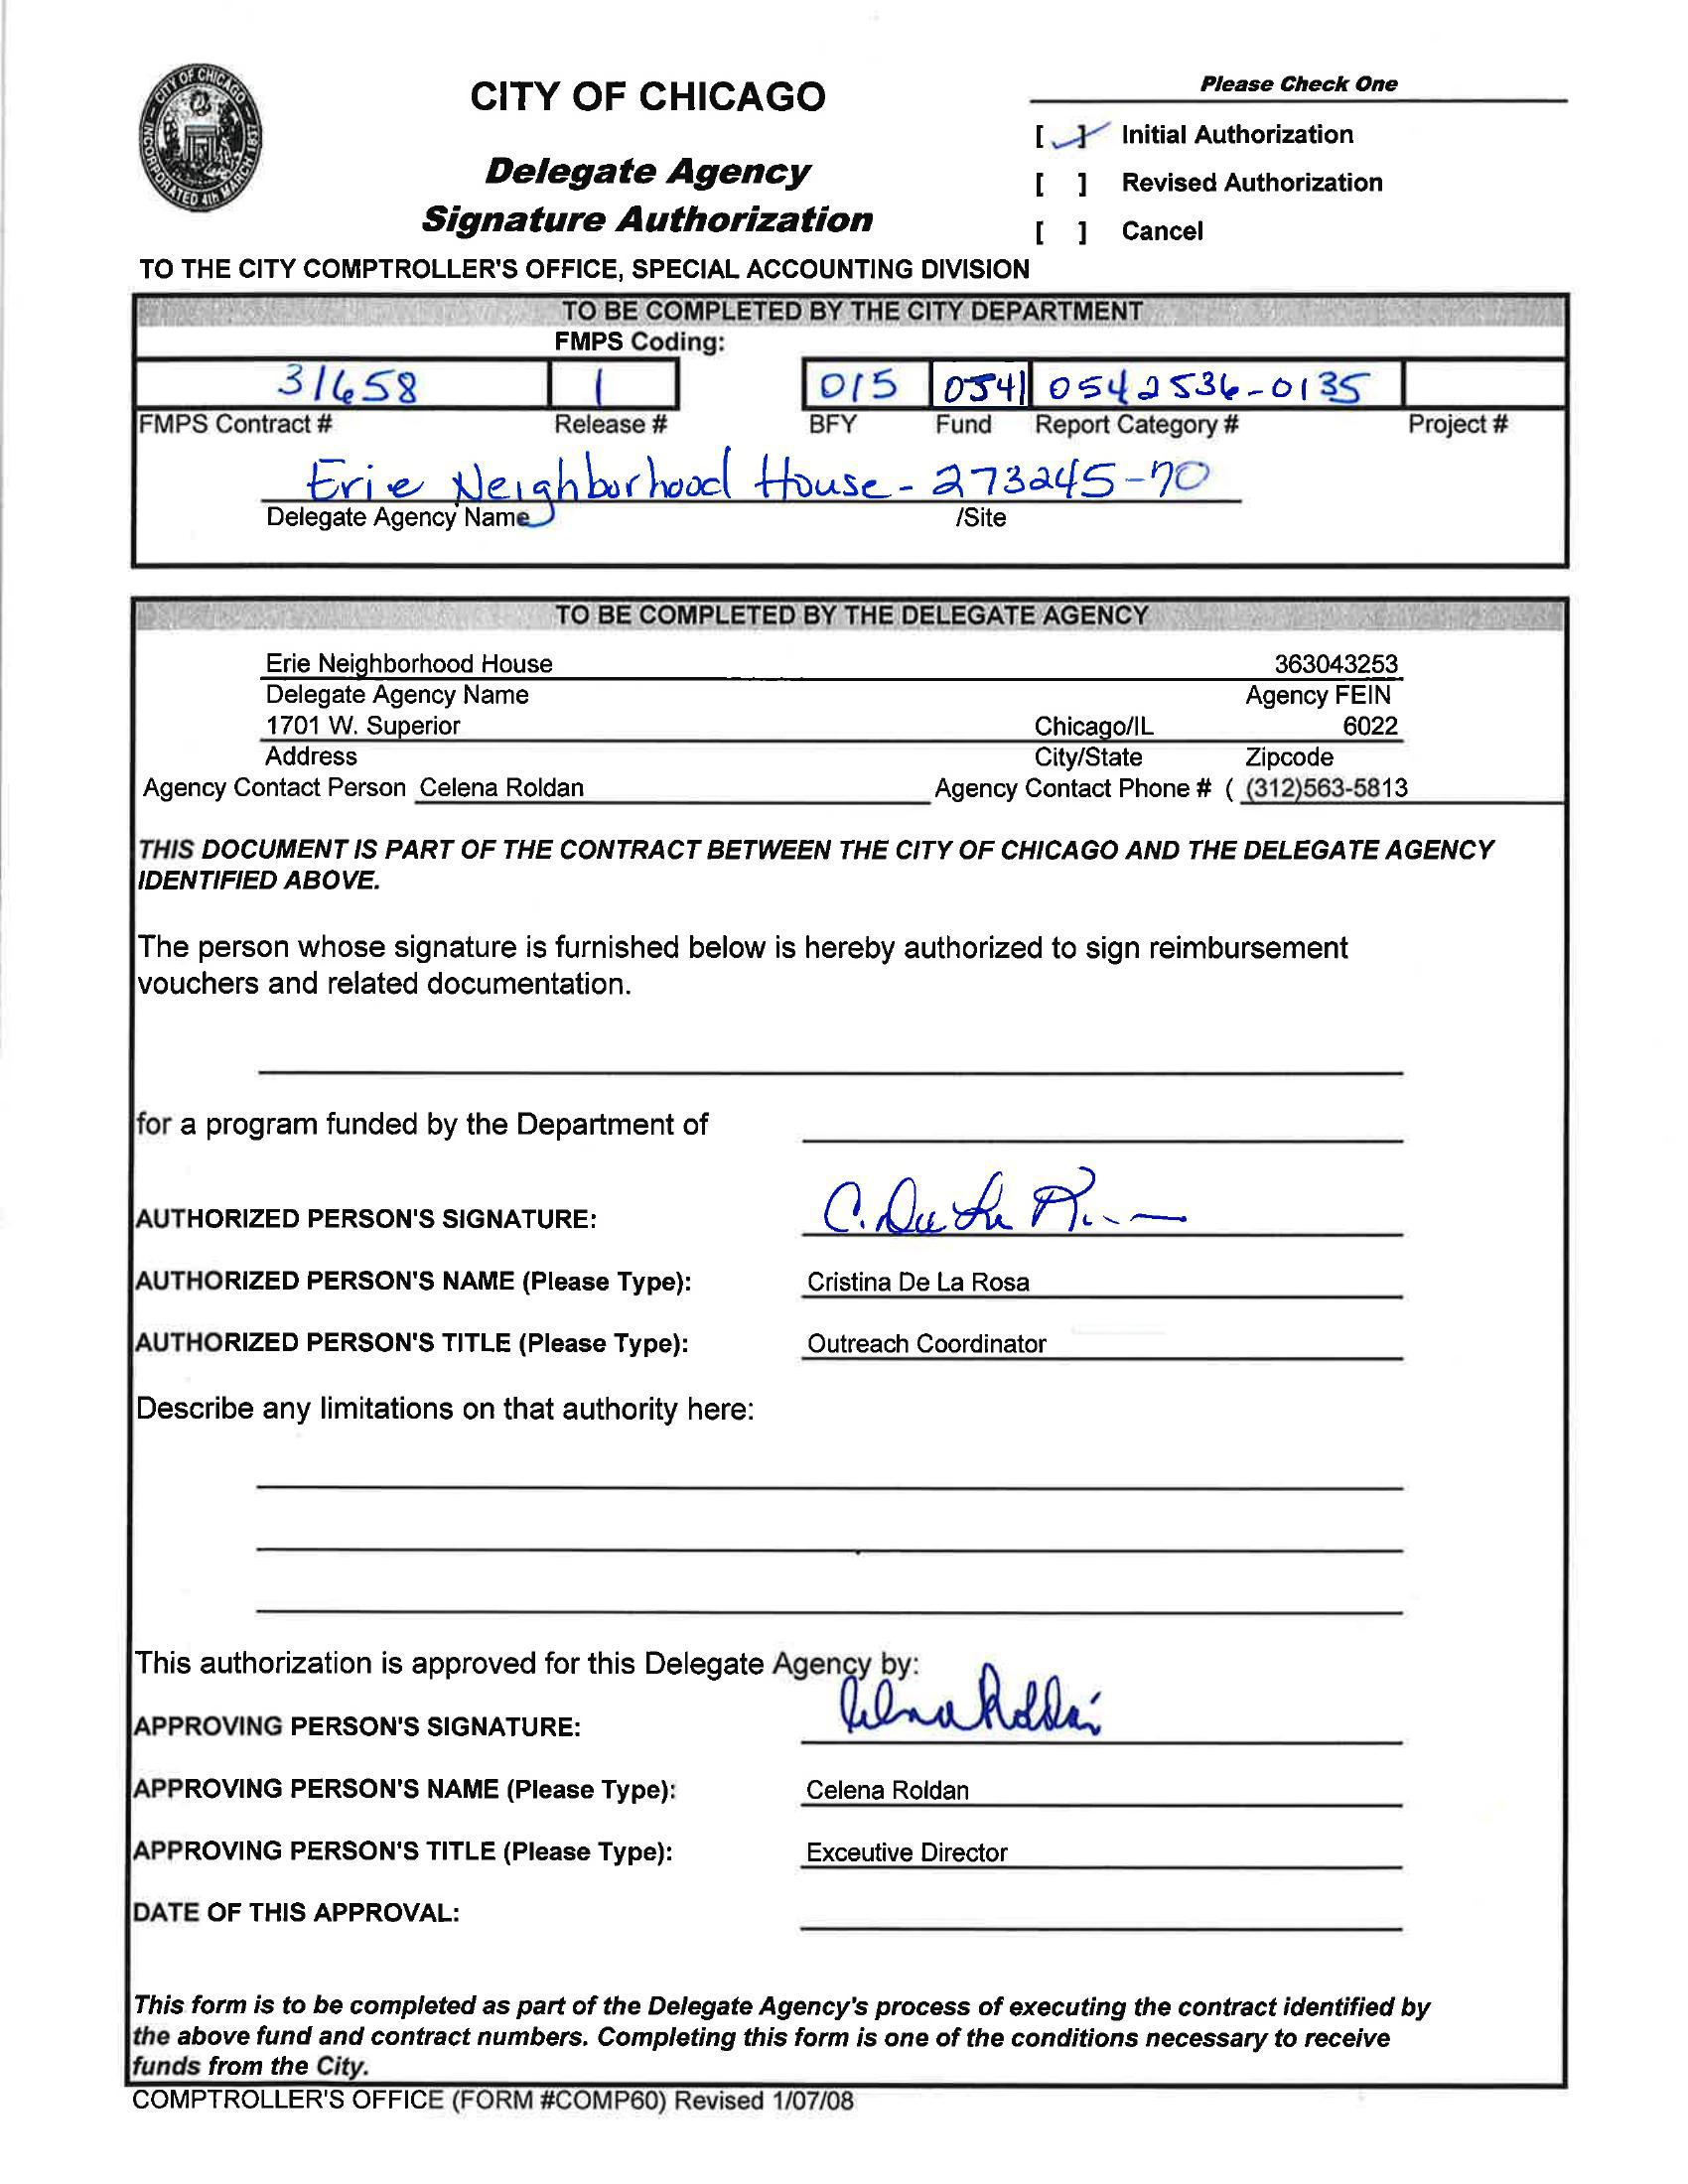 CITY OF CHICAGO - INCORPORATED 4th MARCH 1837
CITY OF CHICAGO
Delegate Agency
Signature Authorization
Please Check One
[ ✓ ] Initial Authorization
[ ] Revised Authorization
[ ] Cancel
TO THE CITY COMPTROLLER'S OFFICE, SPECIAL ACCOUNTING DIVISION
TO BE COMPLETED BY THE CITY DEPARTMENT
FMPS Coding:
31658 1 015 0541 0542536-0135
FMPS Contract # Release # BFY Fund Report Category # Project #
Erie Neighborhood House - 273245-70
Delegate Agency Name /Site
TO BE COMPLETED BY THE DELEGATE AGENCY
Erie Neighborhood House 363043253
Delegate Agency Name Agency FEIN
1701 W. Superior Chicago/IL 6022
Address City/State Zipcode
Agency Contact Person Celena Roldan Agency Contact Phone # ( (312)563-5813
THIS DOCUMENT IS PART OF THE CONTRACT BETWEEN THE CITY OF CHICAGO AND THE DELEGATE AGENCY
IDENTIFIED ABOVE.
The person whose signature is furnished below is hereby authorized to sign reimbursement
vouchers and related documentation.
for a program funded by the Department of
AUTHORIZED PERSON'S SIGNATURE:
AUTHORIZED PERSON'S NAME (Please Type): Cristina De La Rosa
AUTHORIZED PERSON'S TITLE (Please Type): Outreach Coordinator
Describe any limitations on that authority here:
This authorization is approved for this Delegate Agency by:
APPROVING PERSON'S SIGNATURE: Celena Roldán
APPROVING PERSON'S NAME (Please Type): Celena Roldan
APPROVING PERSON'S TITLE (Please Type): Exceutive Director
DATE OF THIS APPROVAL:
This form is to be completed as part of the Delegate Agency's process of executing the contract identified by
the above fund and contract numbers. Completing this form is one of the conditions necessary to receive
funds from the City.
COMPTROLLER'S OFFICE (FORM #COMP60) Revised 1/07/08